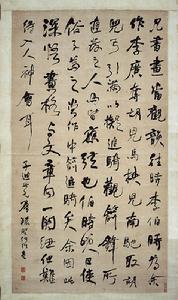 凡書畫當觀韻往時李伯時為余
作李廣奪胡兒馬挾兒南馳取胡
兒弓引滿以擬追騎觀箭鋒所
直發之人馬皆應弦也伯時笑曰使
俗子為之當作中箭追騎矣余因此
深悟畫格與文章同一關紐但難
得人入神會耳